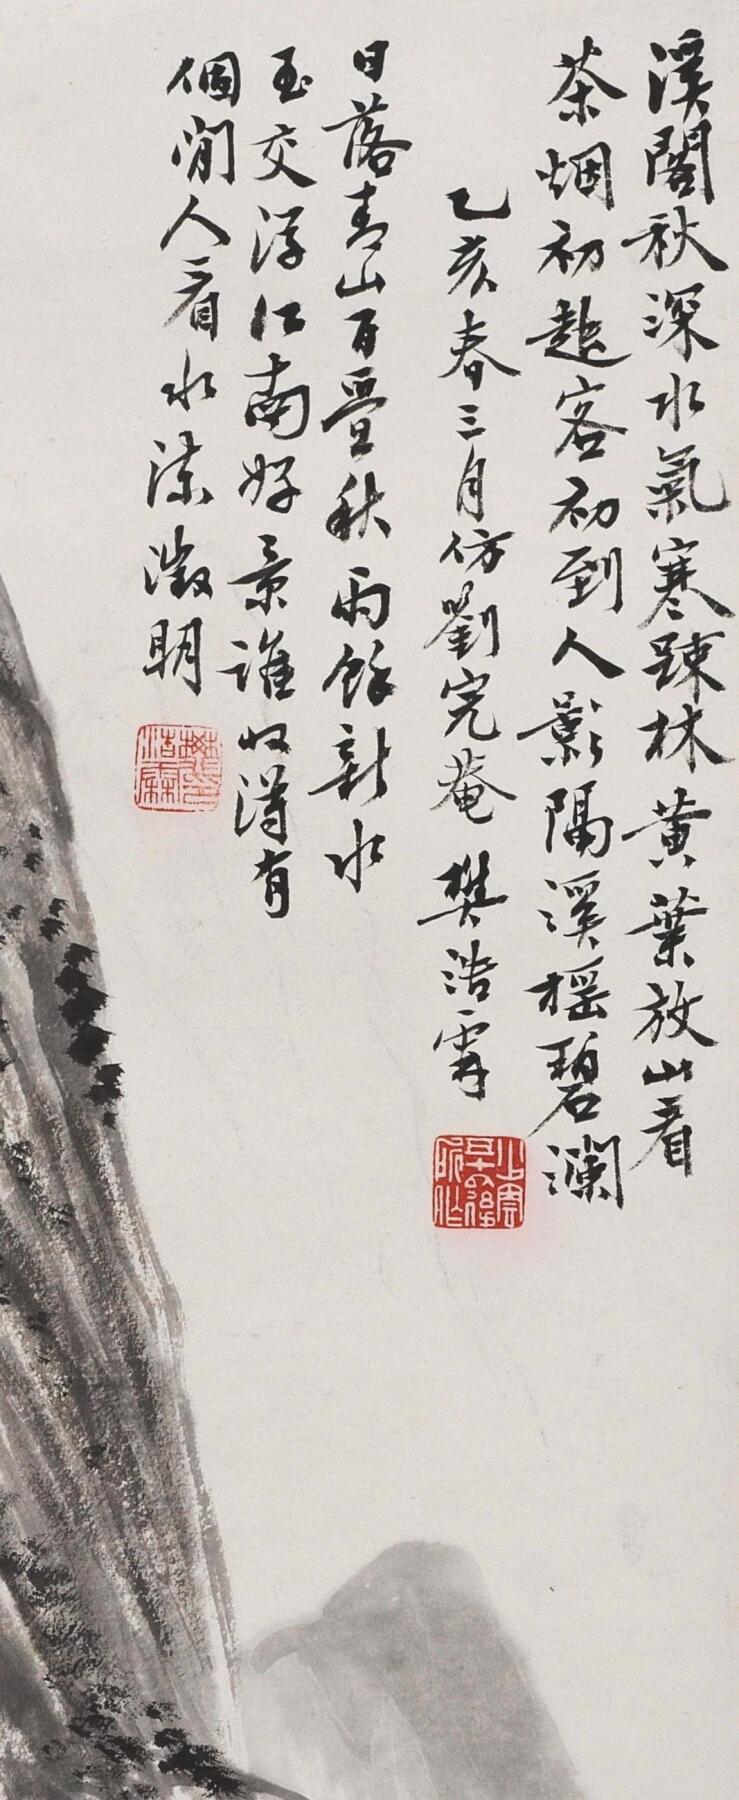 溪閣秋深水氣寒踈林黄葉放山看
茶烟初起客初到人影隔溪摇碧瀾
乙亥春三月仿劉完菴 樊浩霖
日落青山百疊秋雨餘新水
玉交浮江南好景誰收得有
個閒人看水流 澂明